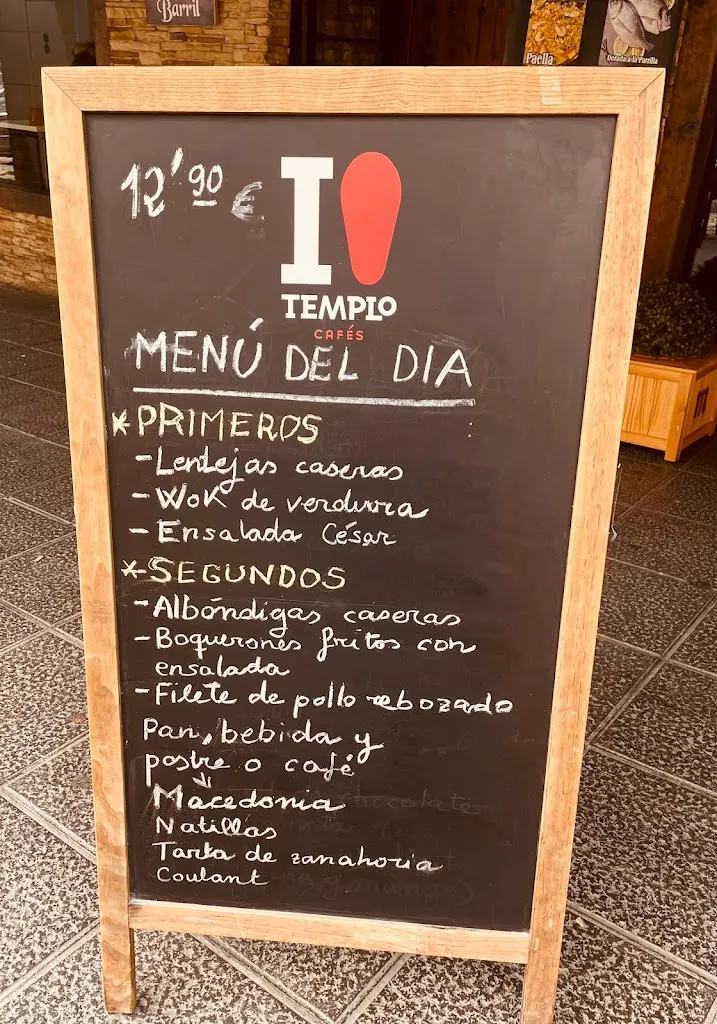 Barril
Paella
Dorada a la Parrilla
12'90 €
I
TEMPLO
CAFÉS
MENÚ DEL DIA
*PRIMEROS
-Lentejas caseras
-Wok de verdura
-Ensalada César
*SEGUNDOS
-Albóndigas caseras
-Boquerones fritos con
ensalada
-Filete de pollo rebozado
Pan, bebida y
postre o café
Macedonia
Natillas
Tarta de zanahoria
Coulant